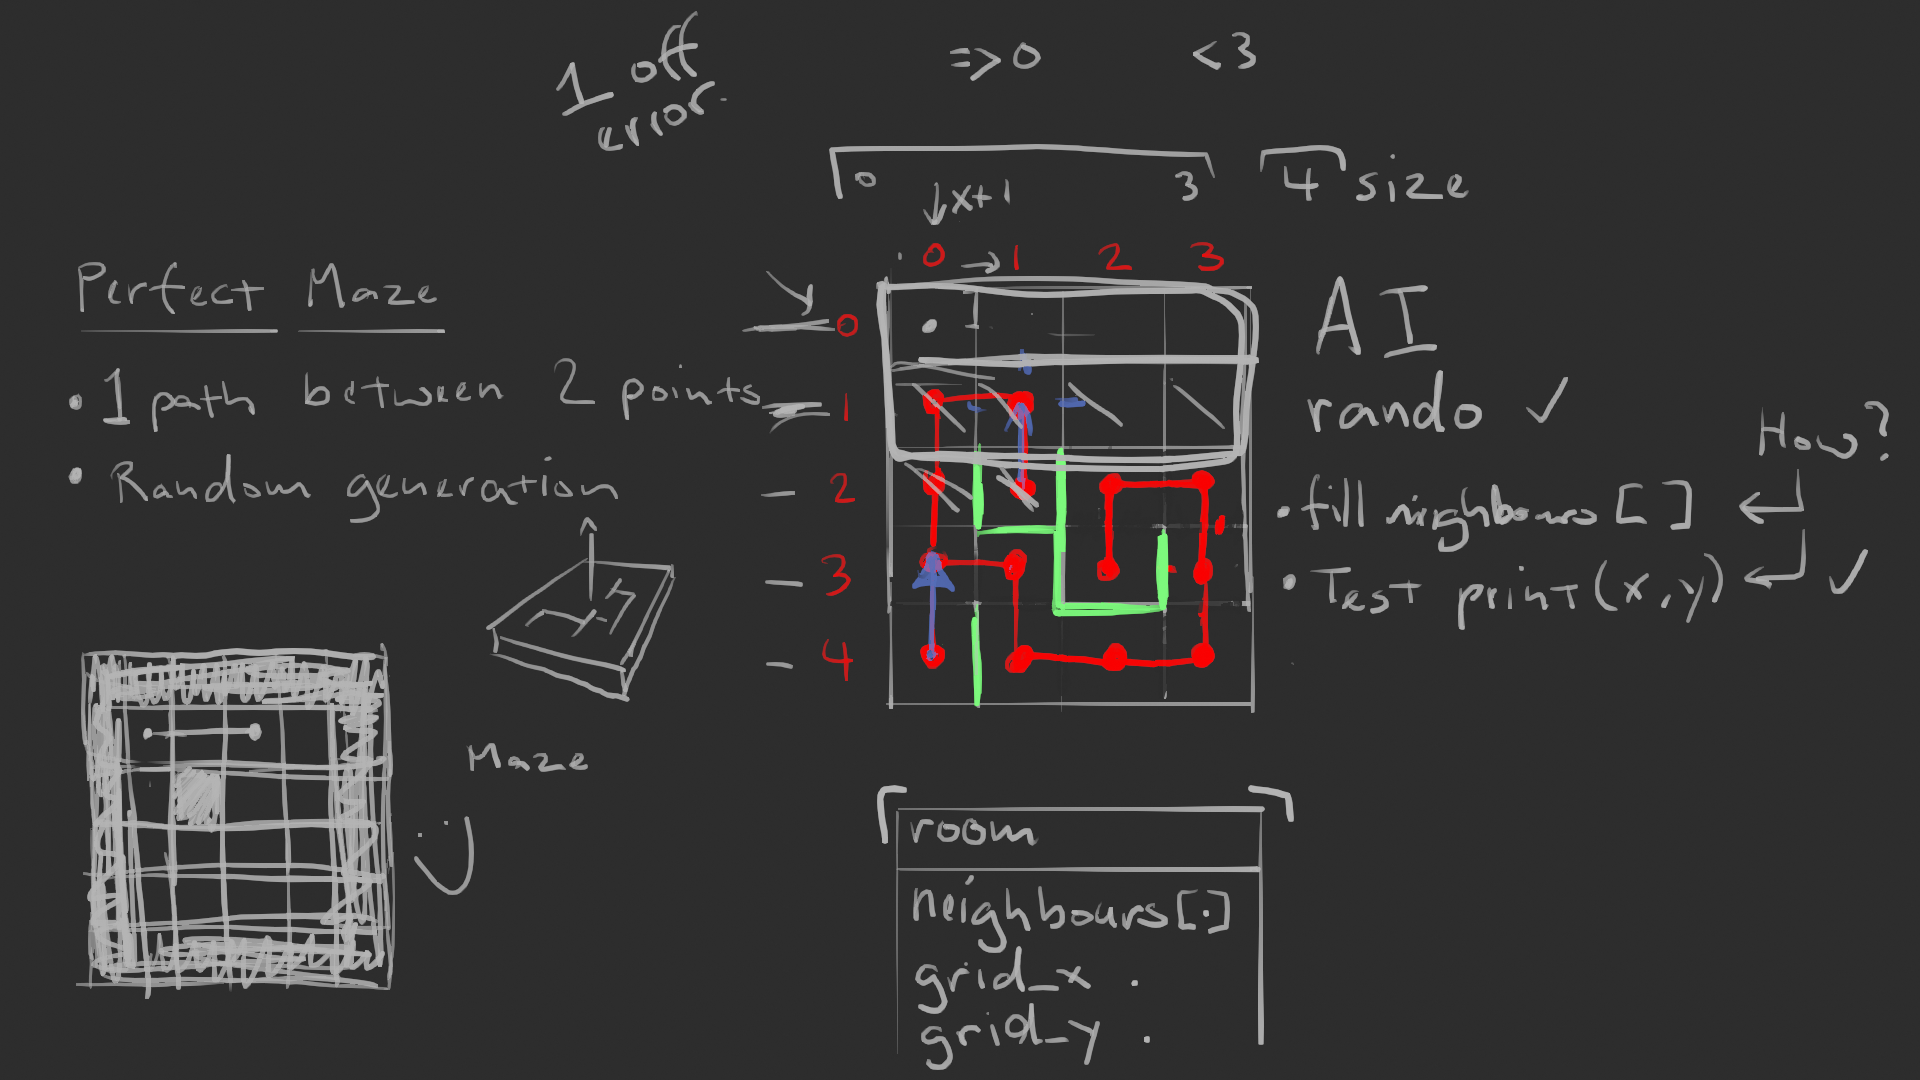 1 off
error.
=>0 <3
0 3 4 size
↓x+1
0 → 1 2 3
0
1
2
3
4
Perfect Maze
• 1 path between 2 points
• Random generation
Maze
AI
rando ✓
How?
• fill nighbours[]
• Test print(x,y) ✓
room
neighbours[.]
grid_x .
grid_y .